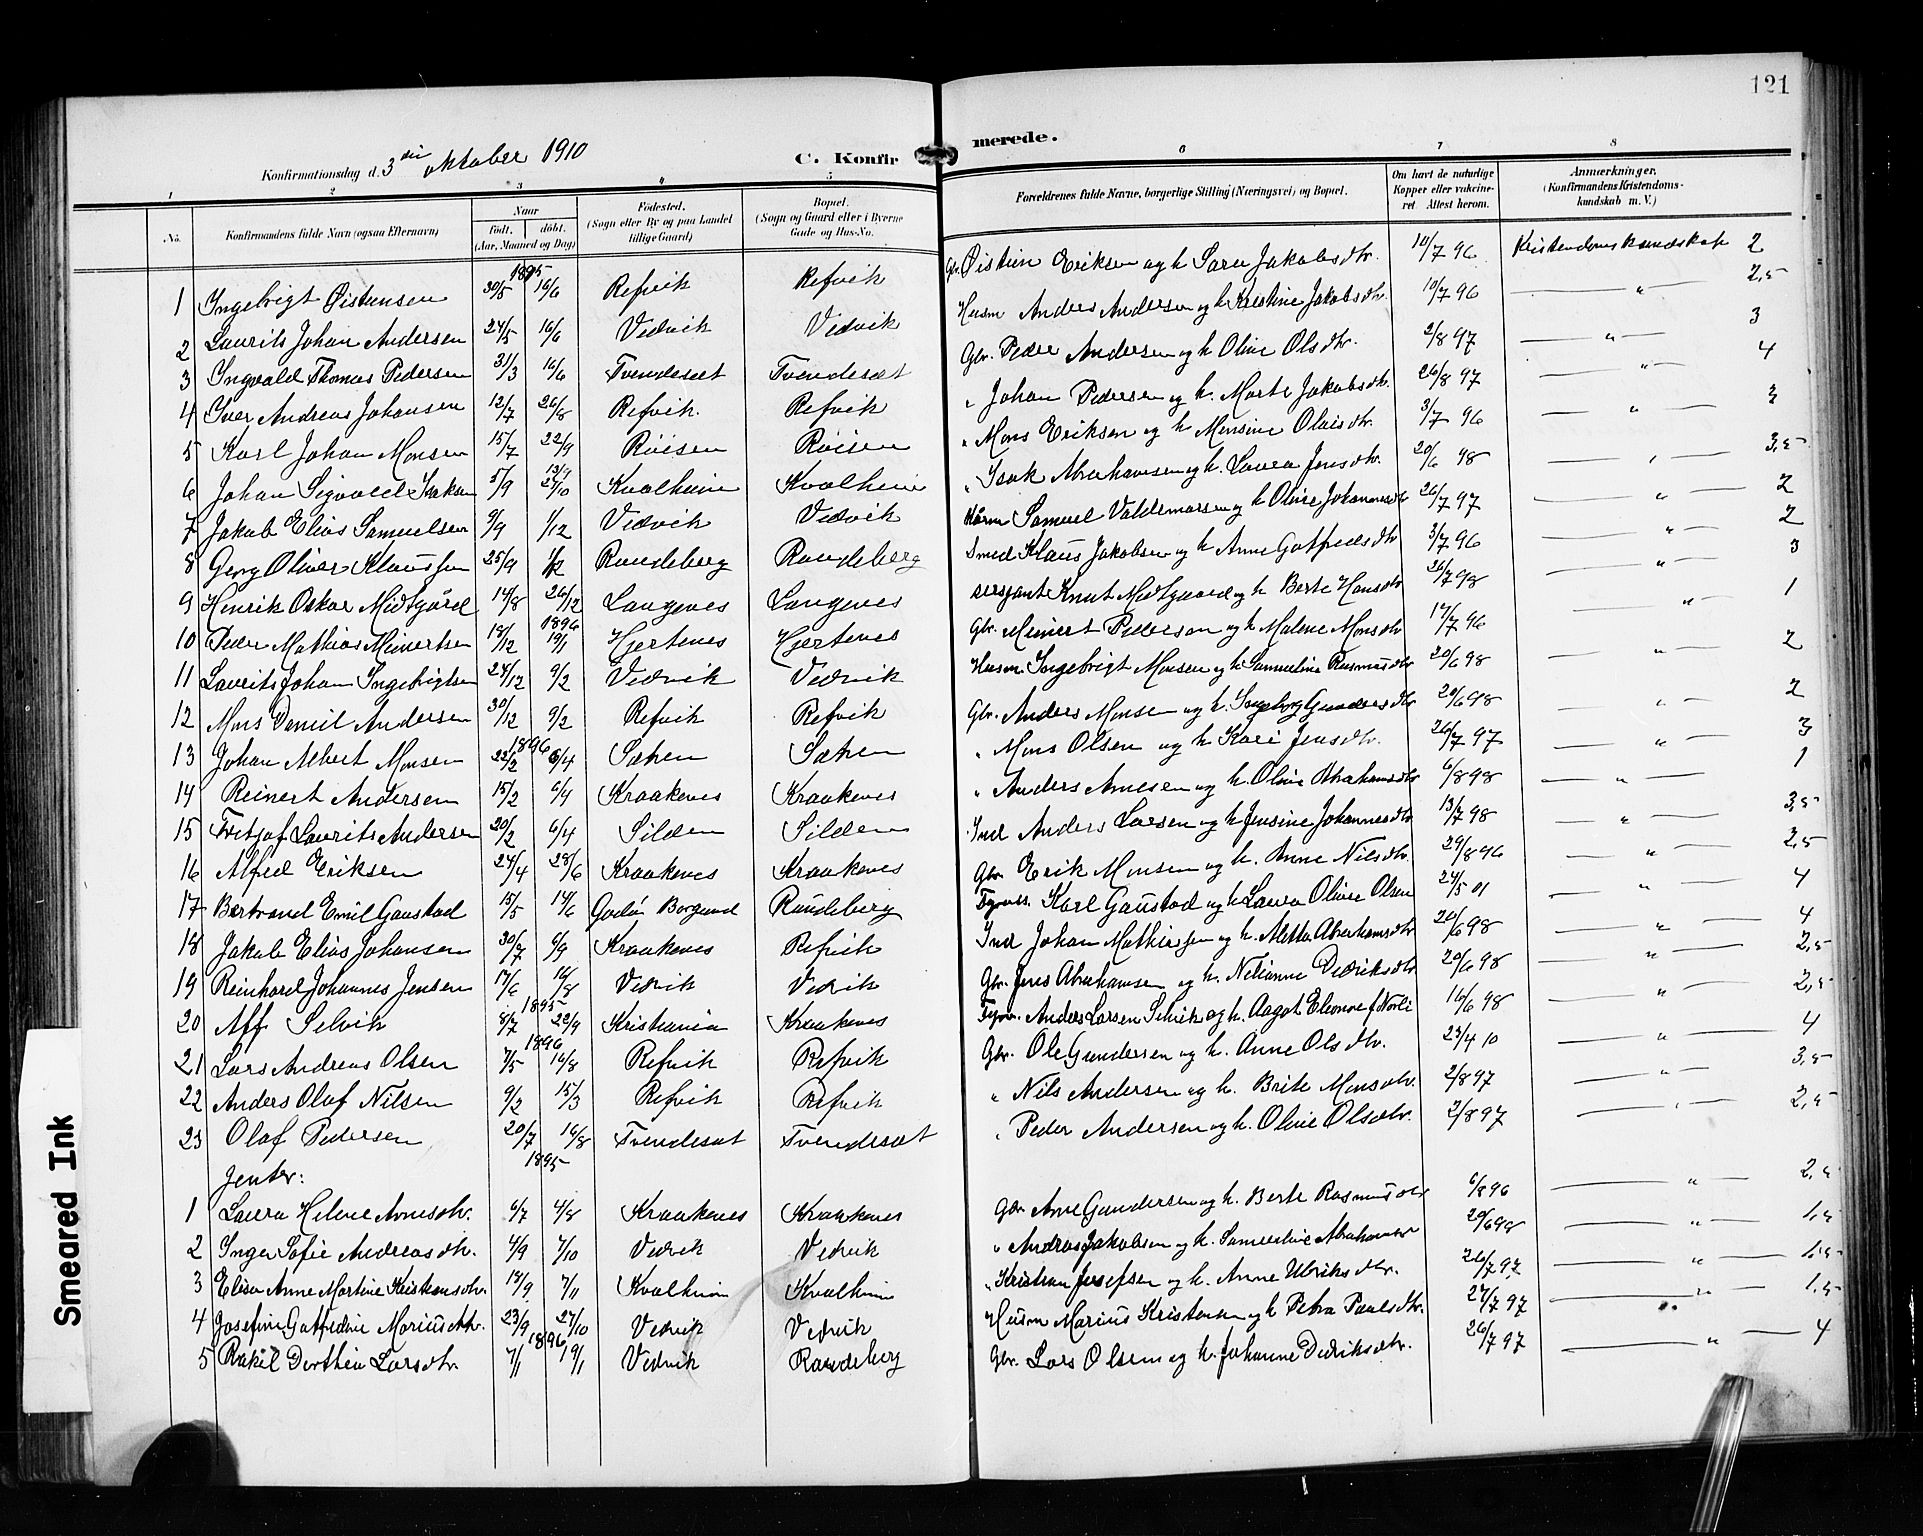 121
Konfirmationsdag d. 3die oktober 1910
C. Konfirmerede.
1 2 3 4 5 6 7 8
No. Konfirmandens fulde Navn (ogsaa Efternavn) Naar født. døbt. (Aar, Maaned og Dag) Fødested. (Sogn eller By og paa Landet tillige Gaard) Bopæl. (Sogn og Gaard eller i Byerne Gade og Hus-No. Forældrenes fulde Navne, borgerlige Stilling (Næringsvei) og Bopæl. Om havt de naturlige Kopper eller vakcineret. Attest herom. Anmærkninger. (Konfirmandens Kristendomskundskab m. V.)
1895
1 Ingebrigt Øistensen 30/5 16/6 Refvik Refvik Gbr. Øistein Eriksen og h Sara Jakobsdtr. 10/7 96 Kristendomskundskab 2
2 Laurits Johan Andersen 24/5 16/6 Vedvik Vedvik Husm Anders Andersen og h Kristine Jakobsdtr. 10/7 96 " 2,5
3 Ingvald Thomas Pedersen 31/3 16/6 Tvendesæt Tvendesæt Gbr. Peder Andersen og h Oline Olsdtr. 2/8 97 " 3
4 Iver Andreas Johansen 12/7 26/8 Refvik. Refvik " Johan Pedersen og h. Marte Jakobsdtr. 26/8 97 " 4
5 Karl Johan Monsen 15/7 22/9 Røisen Røisen " Mons Eriksen og h Mensine Olaisdtr. 3/7 96 " 3
6 Johan Sigvald Isaksen 5/9 13/9 27/10 Kvalheim Kvalheim " Isak Abrahamsen og h. Laura Jensdtr. 20/6 98 " 3,5
7 Jakob Elias Samuelsen 9/9 1/12 Vedvik Vedvik Kårm Samuel Valdemarsen og h Oline Johannesdtr 26/7 97 " 2
8 Georg Oliver Klaussen 25/9 1/12 Raudeberg Raudeberg Smed Klaus Jakobsen og h Anne Gotfredsdtr 3/7 96 " 2
9 Henrik Oskar Midtgård 14/8 26/12 Langenes Langenes sersjant Knut Midtgaard og h Berte Hansdtr 26/7 98 " 3
1896
10 Peder Mathias Meinertsen 18/12 19/1 Hjertenes Hjertenes Gbr. Meinert Pedersen og h Malene Monsdtr 17/7 96 " 1
11 Laurits Johan Ingebrigtsen 24/12 9/2 Vedvik Vedvik Husm Ingebrigt Monsen og h Samueline Rasmusdtr 20/6 98 " 2
12 Mons Daniel Andersen 30/12 9/2 Refvik Refvik Gbr. Anders Monsen og h. Ingeborg Gundersdtr 20/6 98 " 2
1896
13 Johan Albert Monsen 22/2 6/4 Sæhen Sæhen " Mons Olsen og h Kari Jensdtr. 26/7 97 " 3
14 Reinert Andersen 15/2 6/4 Kraakenes Kraakenes " Anders Arnesen og h. Oline Abrahamsdtr 6/8 98 " 1
15 Fritjof Laurits Andersen 20/2 6/4 Silden Silden Ind Anders Larsen og h Jensine Johannesdtr 13/7 98 " 3,5
16 Alfred Eriksen 24/4 28/6 Kraakenes Kraakenes Gbr. Erik Monsen og h. Anne Nilsdtr. 29/8 96 " 2,5
17 Bertrand Emil Gaustad 15/5 14/6 Godø Borgund Raudeberg Fyrvs. Karl Gaustad og h Laura Olivie Olsen 24/5 01 " 4
18 Jakob Elias Johansen 30/7 6/9 Kraakenes Refvik Ind Johan Mathiasen og h. Mette Abrahamsdtr 20/6 98 " 4
19 Reinhard Johannes Jensen 17/6 16/8 Vedvik Vedvik Gbr. Jens Abrahamsen og h. Nelianne Dedriksdtr 20/6 98 " 2,5
1895
20 Aff Selvik 8/7 22/9 Kristiania Kraakenes Fyrv. Anders Larsen Selvik og h. Aagot Eleonore f Norli 16/6 98 " 2,5
1896
21 Lars Andreas Olsen 7/5 16/8 Refvik Refvik Gbr. Ole Gundersen og h. Anne Olsdtr. 23/4 10 " 4
22 Anders Olaf Nilsen 9/2 15/3 Refvik Refvik " Nils Andersen og h. Brite Monsdtr. 2/8 97 " 3,5
23 Olaf Pedersen 20/7 16/8 Tvendesæt Tvendesæt " Peder Andersen og h. Oline Olsdtr. 2/8 97 " 2,5
Jenter:
1895
1 Laura Helene Arnesdtr. 6/7 4/8 Kraakenes Kraakenes Gbr Arne Gundersen og h. Berte Rasmusdtr 6/8 96 " 2,5
2 Inga Sofie Andreasdtr. 4/9 7/10 Vedvik Vedvik " Andreas Jakobsen og h. Samueline Abrahamsdtr 20/6 98 " 1,5
3 Elisa Anne Martine Kristiansdtr. 18/9 7/11 Kvalheim Kvalheim " Kristian Josefsen og h. Anne Ulriksdtr. 26/7 97 " 1,5
4 Josefine Gotfredine Mariusdtr. 23/9 27/10 Vedvik Vedvik Husm Marius Kristensen og h Petra Paulsdtr. 27/7 97 " 1,5
1896
5 Rakel Dorthea Larsdtr. 7/1 19/1 Vedvik Raudeberg Gbr. Lars Olsen og h. Johanne Dedriksdtr. 26/7 97 " 4
Smeared Ink